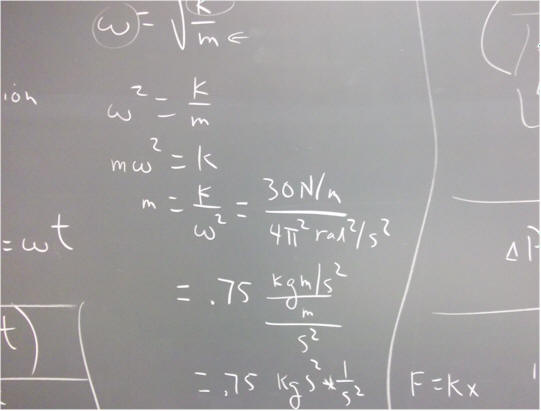 ω = √k/m ←
ion
ω² = k/m
mω² = k
m = k/ω² = 30 N/m / 4π² rad²/s²
= ωt
= .75 kgm/s² / m / s²
t)
= .75 kg s² * 1/s²
F = kx